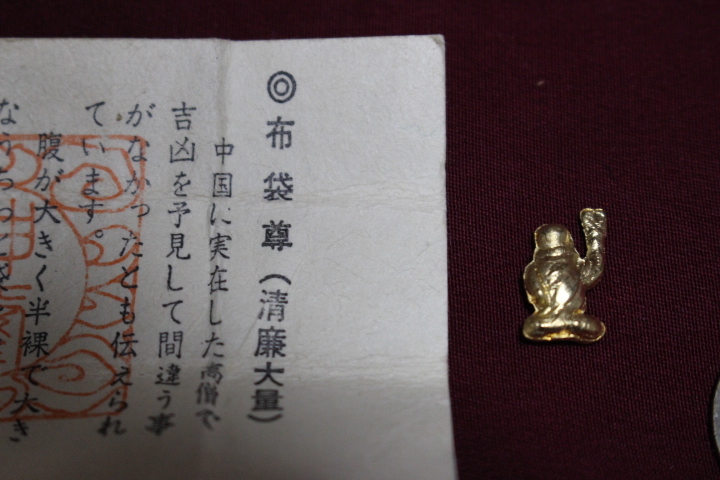 ◎布袋尊(清廉大量)
中国に実在した高僧で
吉凶を予見して間違う事
がなかったとも伝えられ
ています。
腹が大きく半裸で大き
な